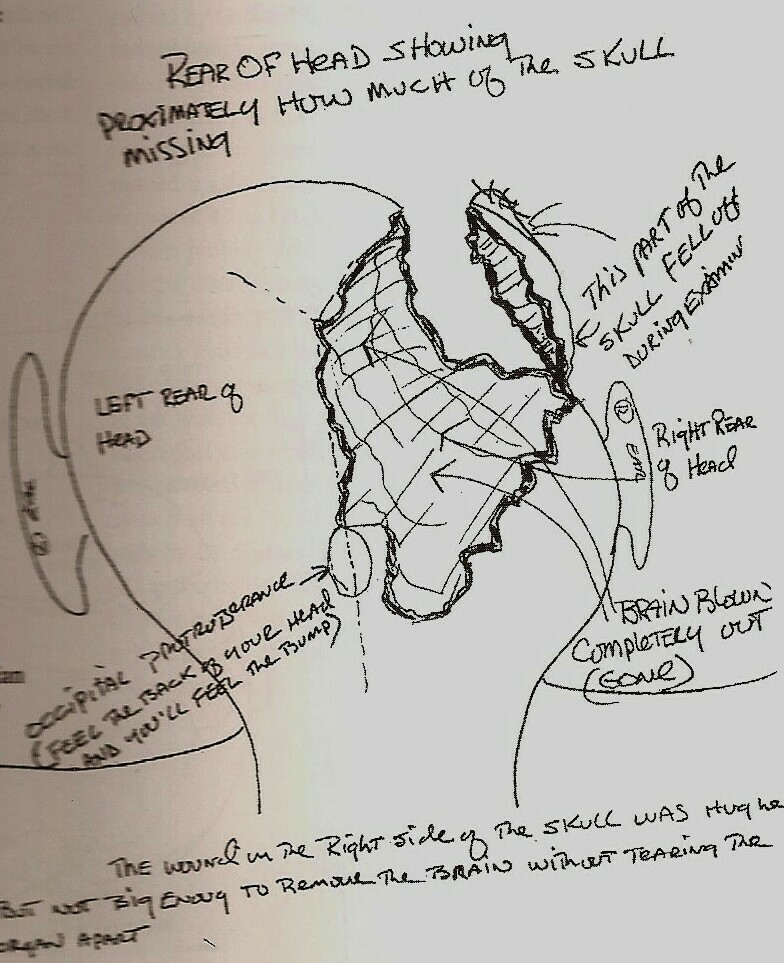 REAR OF HEAD SHOWING
PROXIMATELY HOW MUCH OF THE SKULL
MISSING
THIS PART OF THE
SKULL FELL OFF
DURING EXAMIN
LEFT REAR OF
HEAD
EAR
RIGHT REAR
OF HEAD
OCCIPITAL PROTRUBERANCE
(FEEL THE BACK OF YOUR HEAD
AND YOU'LL FEEL THE BUMP)
BRAIN BLOWN
COMPLETELY OUT
(GONE)
THE WOUND IN THE RIGHT SIDE OF THE SKULL WAS HUGHE
BUT NOT BIG ENOUG TO REMOVE THE BRAIN WITHOUT TEARING THE
ORGAN APART